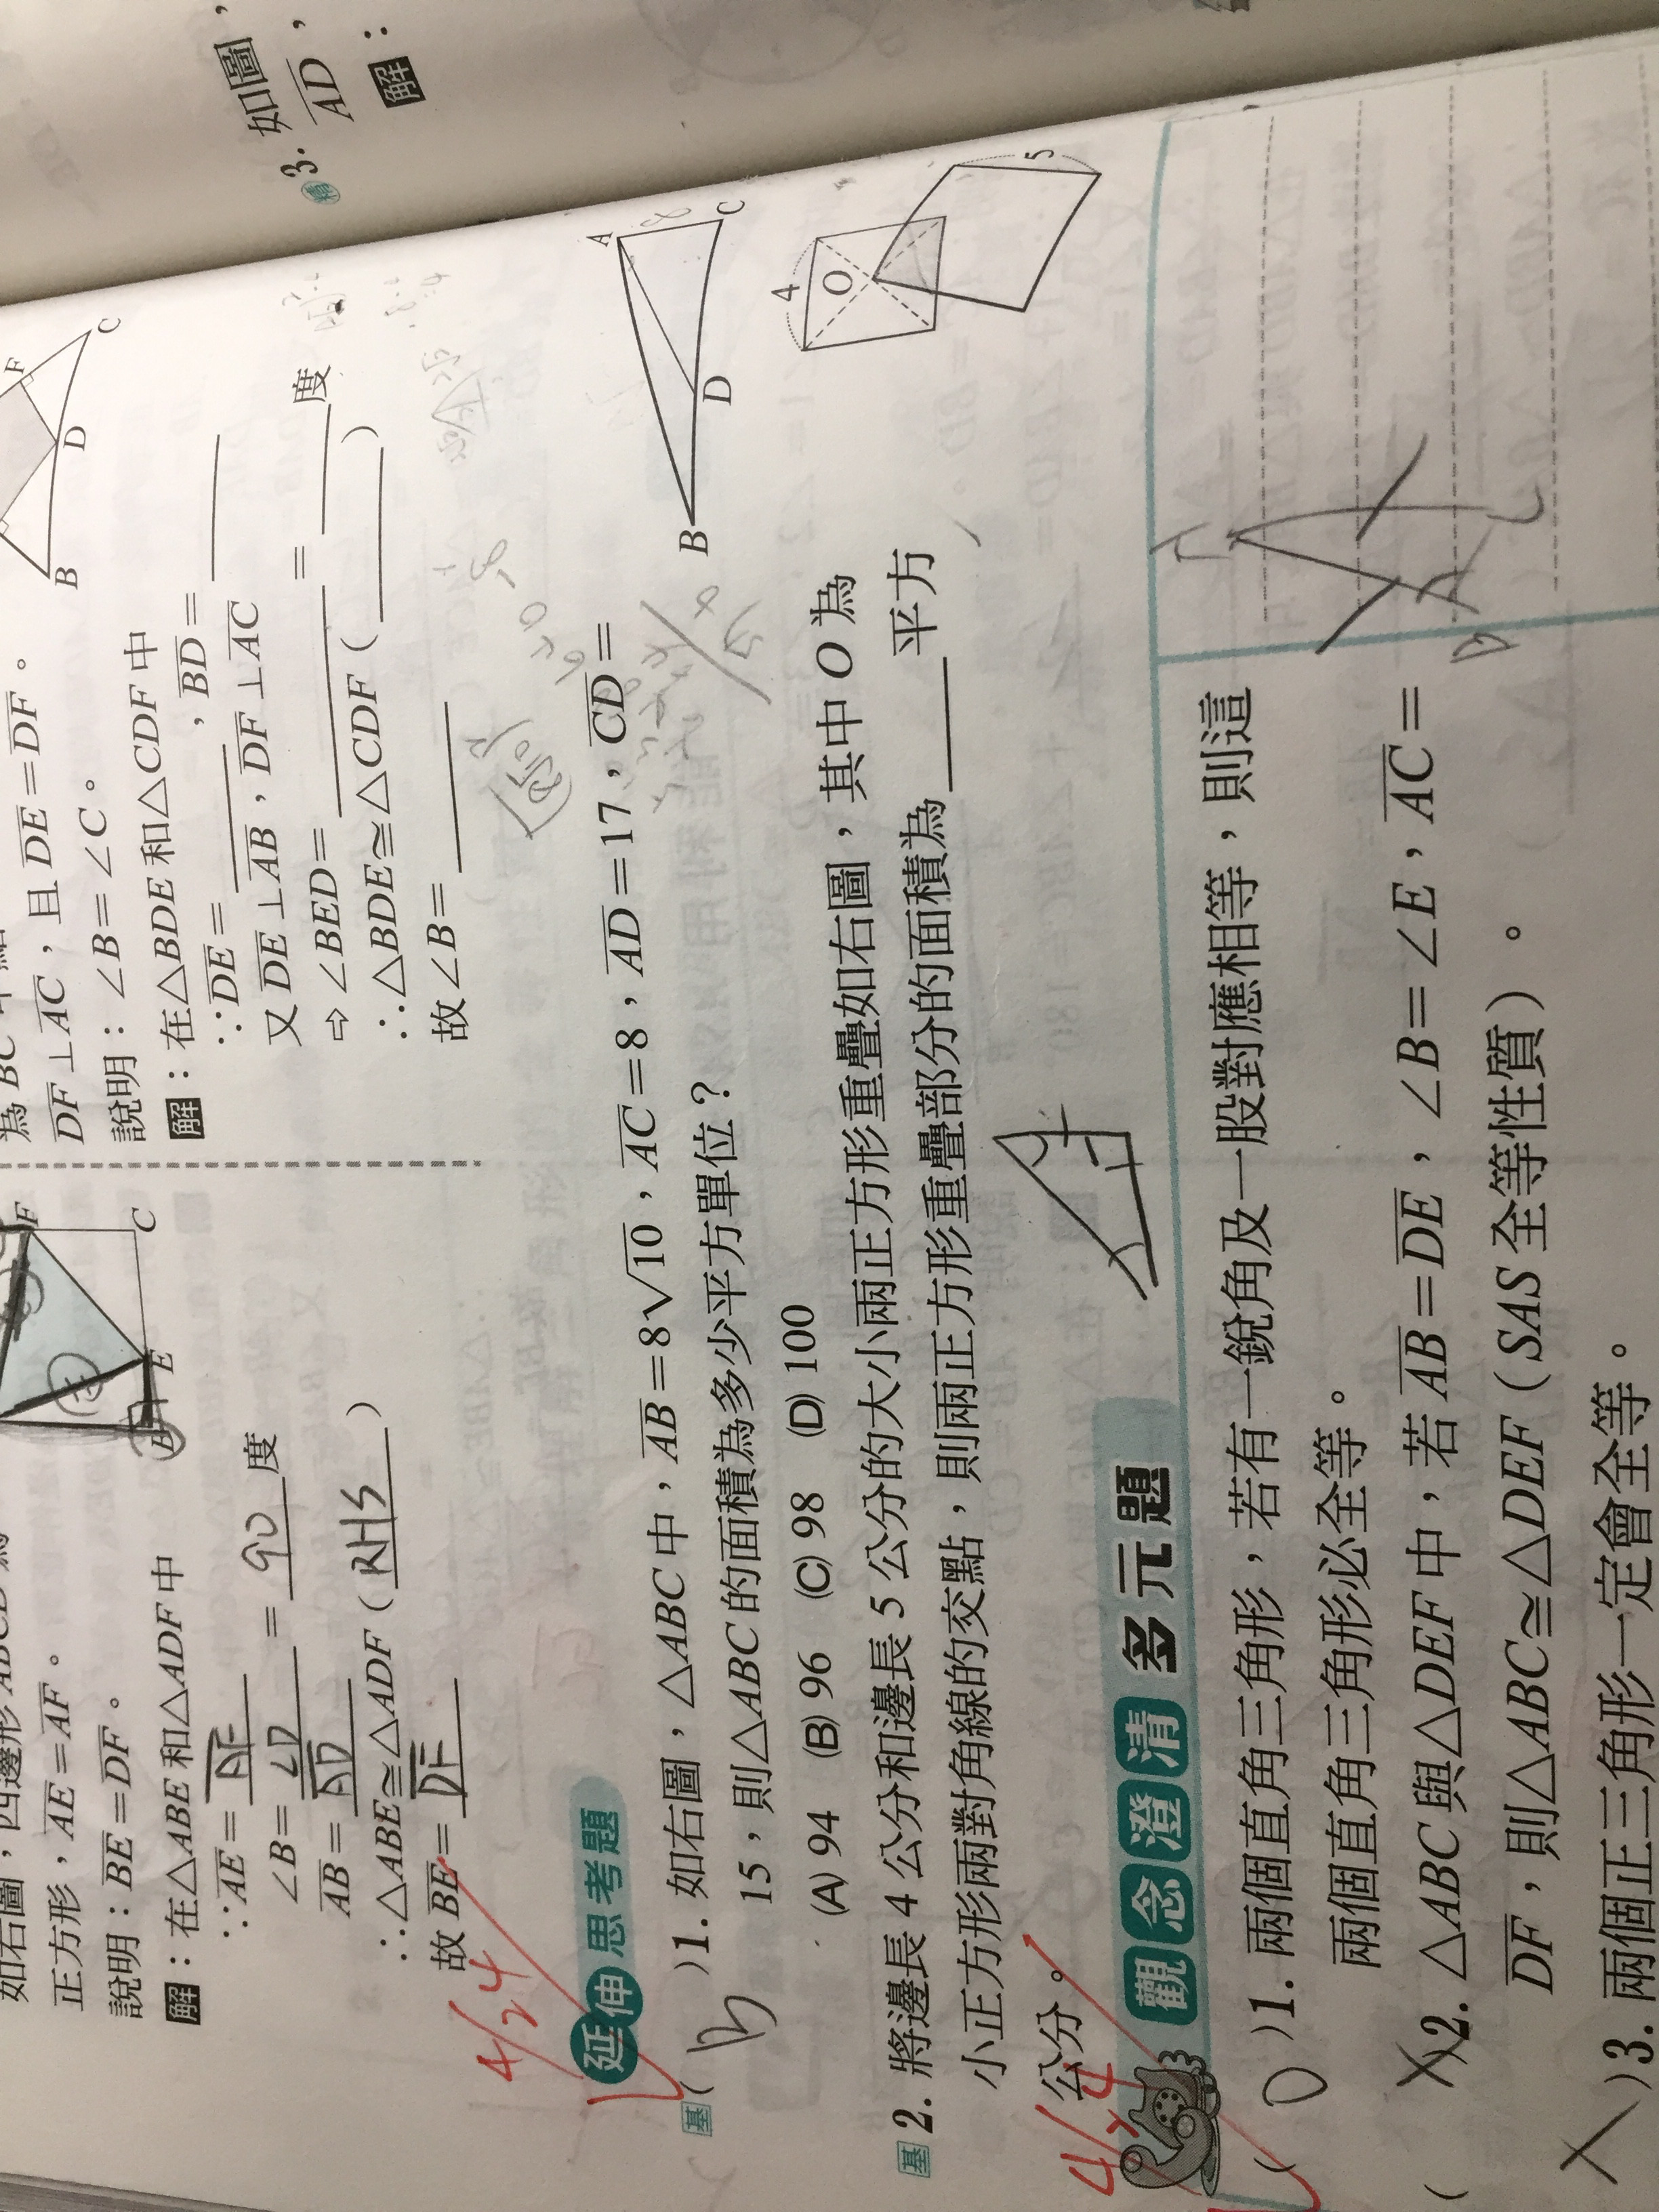 如右圖，四邊形ABCD為
正方形，AE＝AF。
說明：BE＝DF。
解：在△ABE和△ADF中
∵AE＝AF
∠B＝∠D＝90度
AB＝AD
∴△ABE≅△ADF（RHS）
故BE＝DF
F
C
E
B
為BC中點
DF⊥AC，且DE＝DF。
說明：∠B＝∠C。
解：在△BDE和△CDF中
∵DE＝＿＿，BD＝＿＿
又DE⊥AB，DF⊥AC
⇨∠BED＝＿＿＝＿＿度
∴△BDE≅△CDF（＿＿）
故∠B＝＿＿
B
D
F
C
4/24
延伸思考題
基（B）1. 如右圖，△ABC中，AB＝8√10，AC＝8，AD＝17，CD＝
15，則△ABC的面積為多少平方單位？
(A) 94 (B) 96 (C) 98 (D) 100
A
8
B
D
C
基2. 將邊長4公分和邊長5公分的大小兩正方形重疊如右圖，其中O為
小正方形兩對角線的交點，則兩正方形重疊部分的面積為＿＿平方
公分。
4
O
5
觀念澄清多元題
（O）1. 兩個直角三角形，若有一銳角及一股對應相等，則這
兩個直角三角形必全等。
（X）2. △ABC與△DEF中，若AB＝DE，∠B＝∠E，AC＝
DF，則△ABC≅△DEF（SAS全等性質）。
X）3. 兩個正三角形一定會全等。
精3. 如圖，
AD，
解：